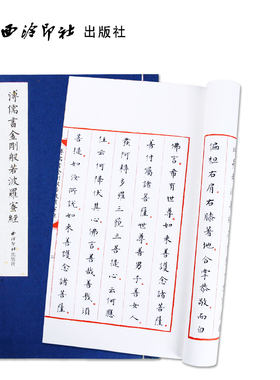 西泠印社 出版社
偏袒右肩右膝著地合掌恭敬而白
佛言希有世尊如来善護念諸菩薩
善付囑諸菩薩世尊善男子善女人
發阿耨多羅三藐三菩提心云何應
住云何降伏其心佛言善哉善哉須
菩提如汝所說如来善護念諸菩薩
溥儒書金剛般若波羅蜜經
西泠印社出版社